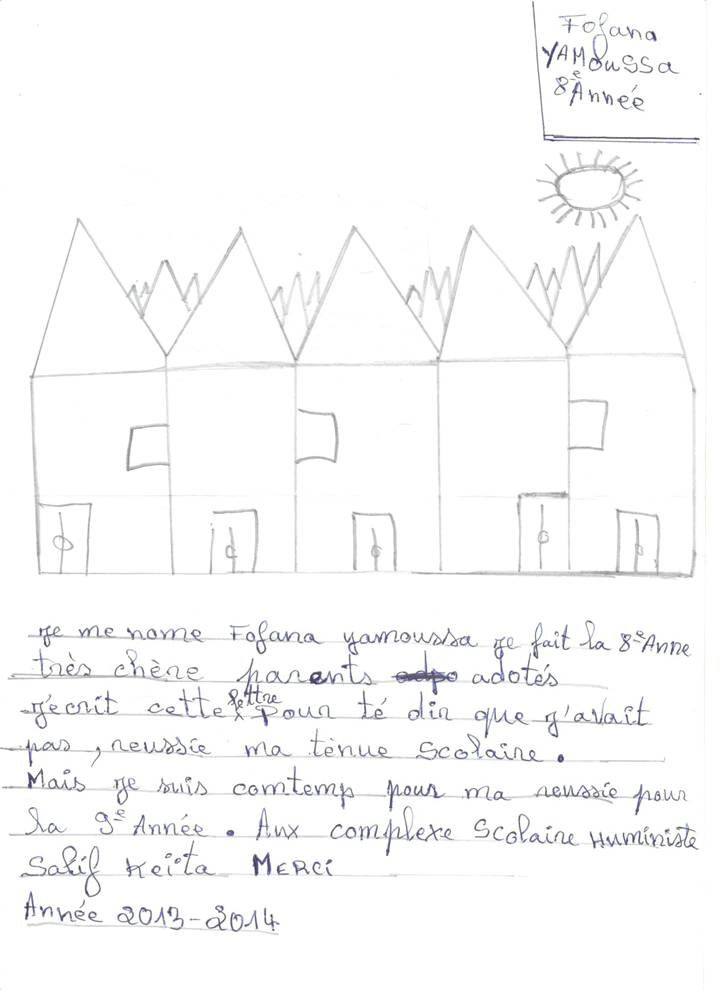 Fofana
YAMOUSSA
8e Année
je me nome Fofana yamoussa je fait la 8e Anne
très chère parents adotés
j'ecrit cette lettre pour té dir que j'avait
pas, reussie ma tenue Scolaire.
Mais je suis comtemp pour ma reussie pour
la 9e Année. Aux complexe Scolaire Huministe
Salif Keïta MERCi
Année 2013-2014